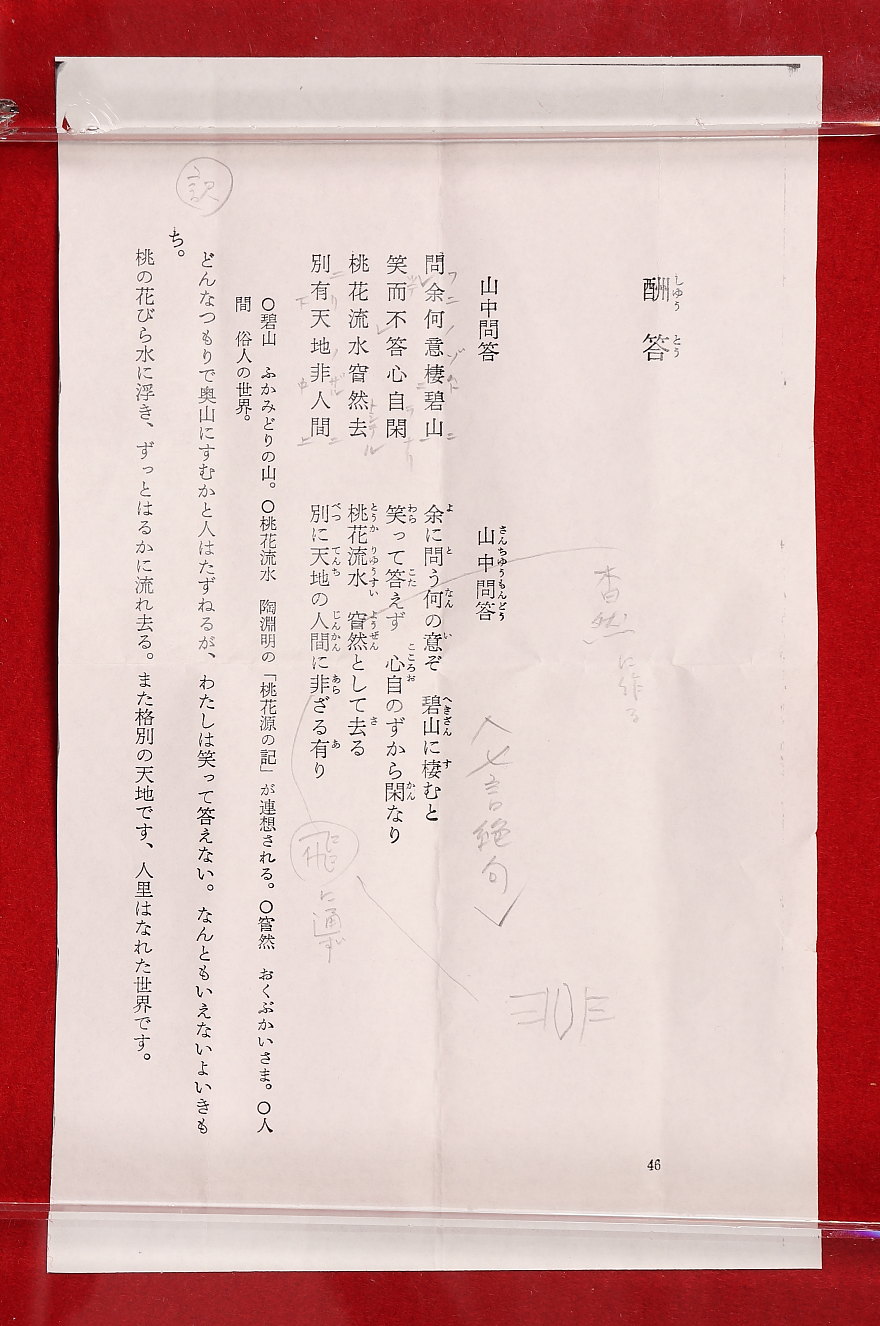 酬答
しゅう とう
山中問答
問余何意棲碧山
笑而不答心自閑
桃花流水窅然去
別有天地非人間
山中問答
さんちゆうもんどう
余に問う何の意ぞ 碧山に棲むと
笑って答えず 心自のずから閑なり
桃花流水 窅然として去る
別に天地の人間に非ざる有り
○碧山 ふかみどりの山。○桃花流水 陶淵明の「桃花源の記」が連想される。○窅然 おくぶかいさま。○人
間 俗人の世界。
訳
どんなつもりで奥山にすむかと人はたずねるが、わたしは笑って答えない。なんともいえないよいきも
ち。
桃の花びら水に浮き、ずっとはるかに流れ去る。また格別の天地です、人里はなれた世界です。
杳然に作る
七言絶句
飛に通ず
非
46